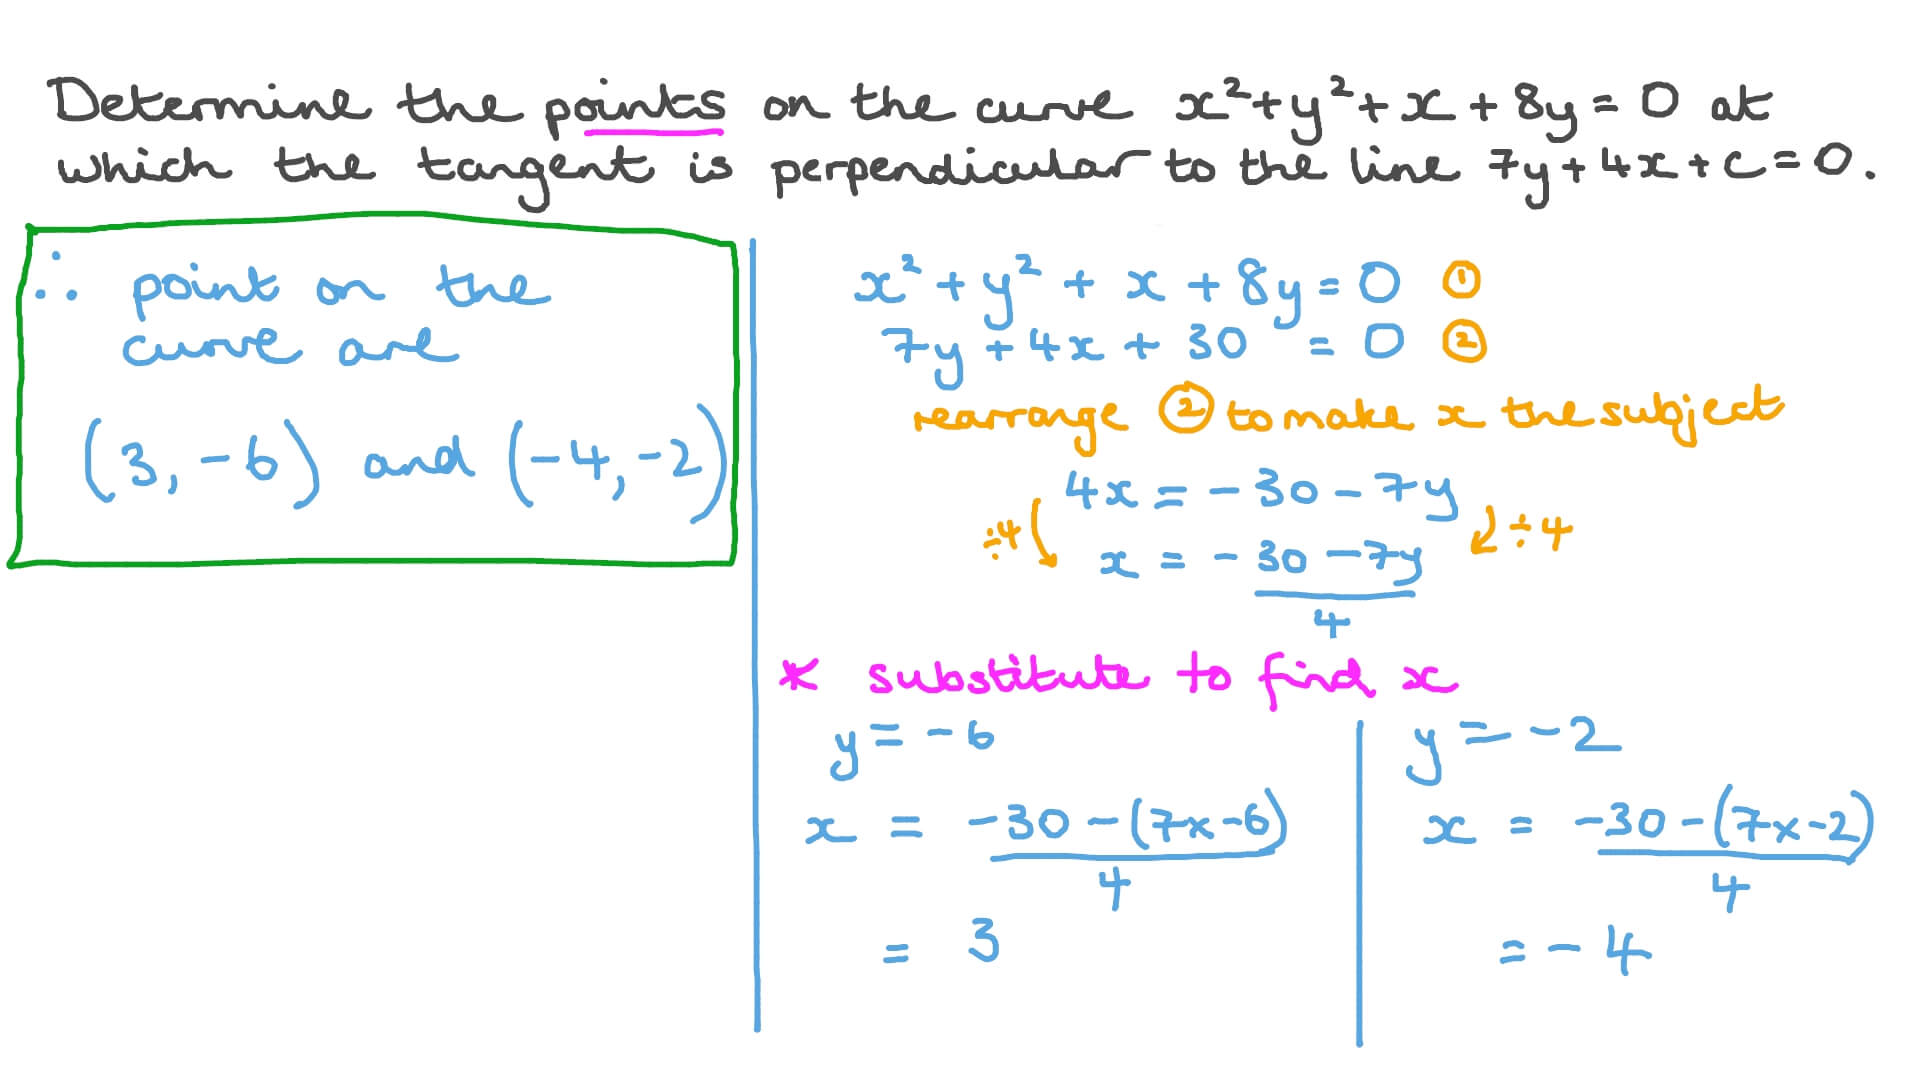 Determine the points on the curve x²+y²+x+8y=0 at
which the tangent is perpendicular to the line 7y+4x+c=0.
∴ point on the
curve are
(3, -6) and (-4, -2)
x²+y²+x+8y=0 ①
7y+4x+30=0 ②
rearrange ② to make x the subject
4x = -30-7y
÷4 ÷4
x = -30-7y
4
* substitute to find x
y=-6
x = -30-(7x-6)
4
= 3
y=-2
x = -30-(7x-2)
4
= -4